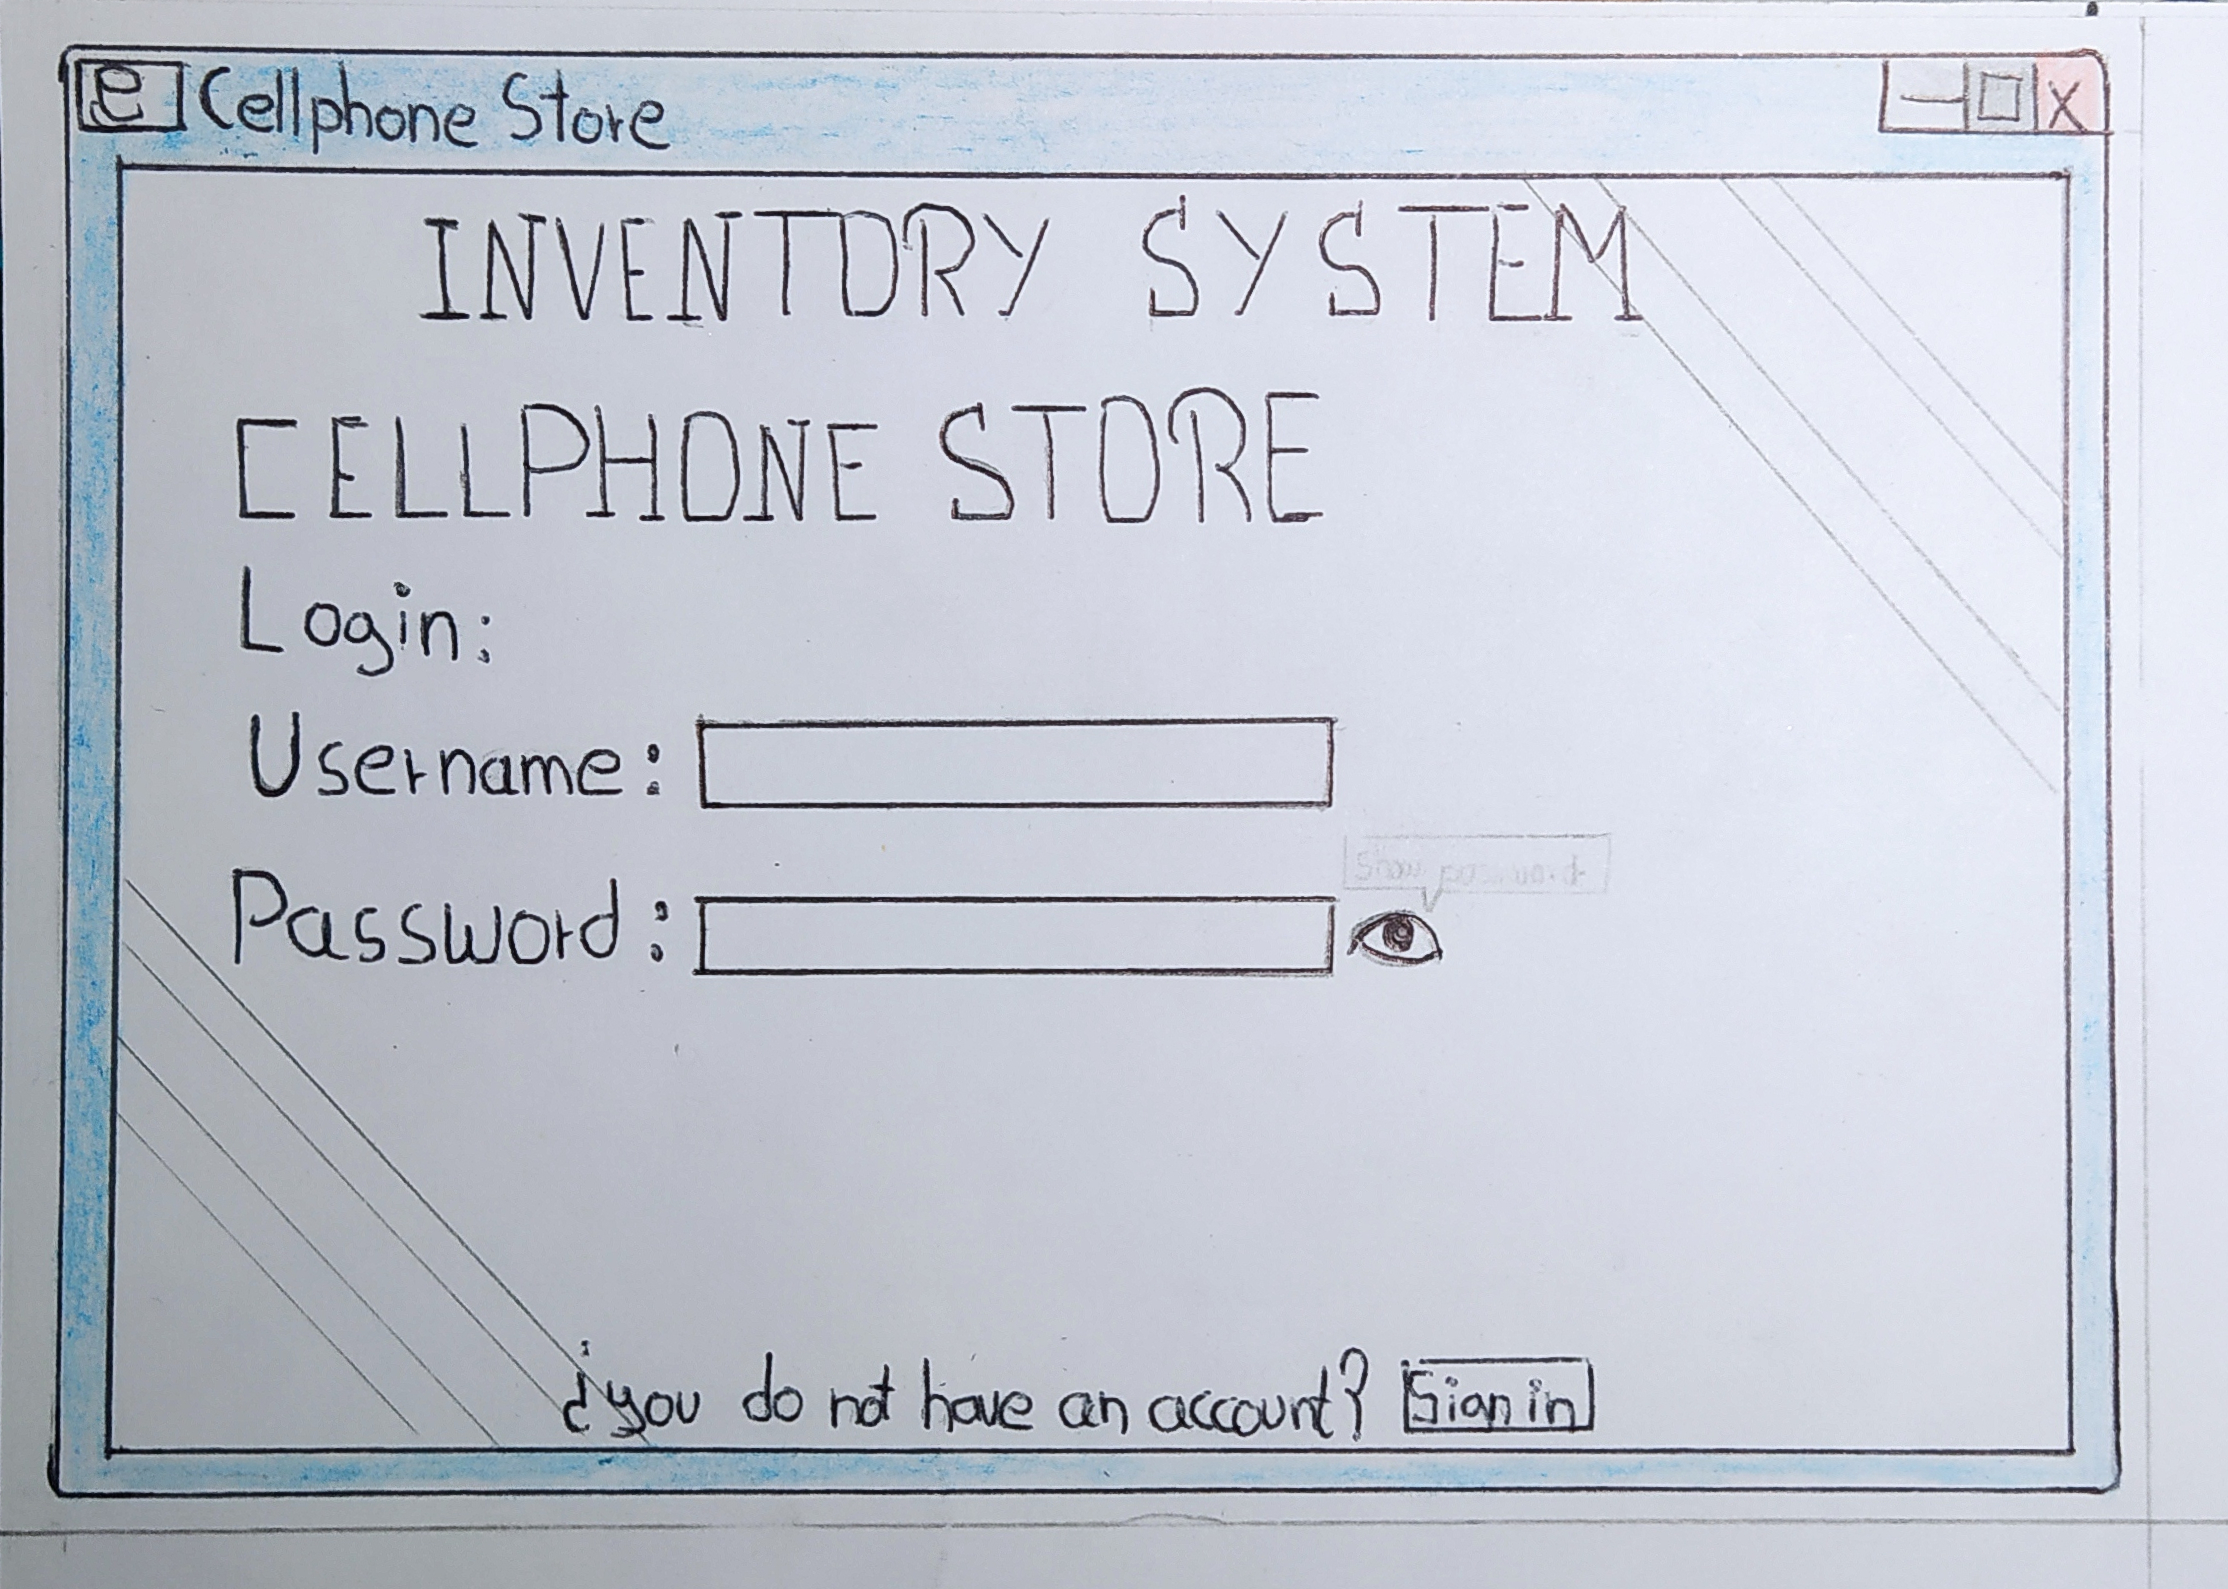 e Cellphone Store
X
INVENTORY SYSTEM
CELLPHONE STORE
Login:
Username:
Show password
Password:
¿you do not have an account? Sign in